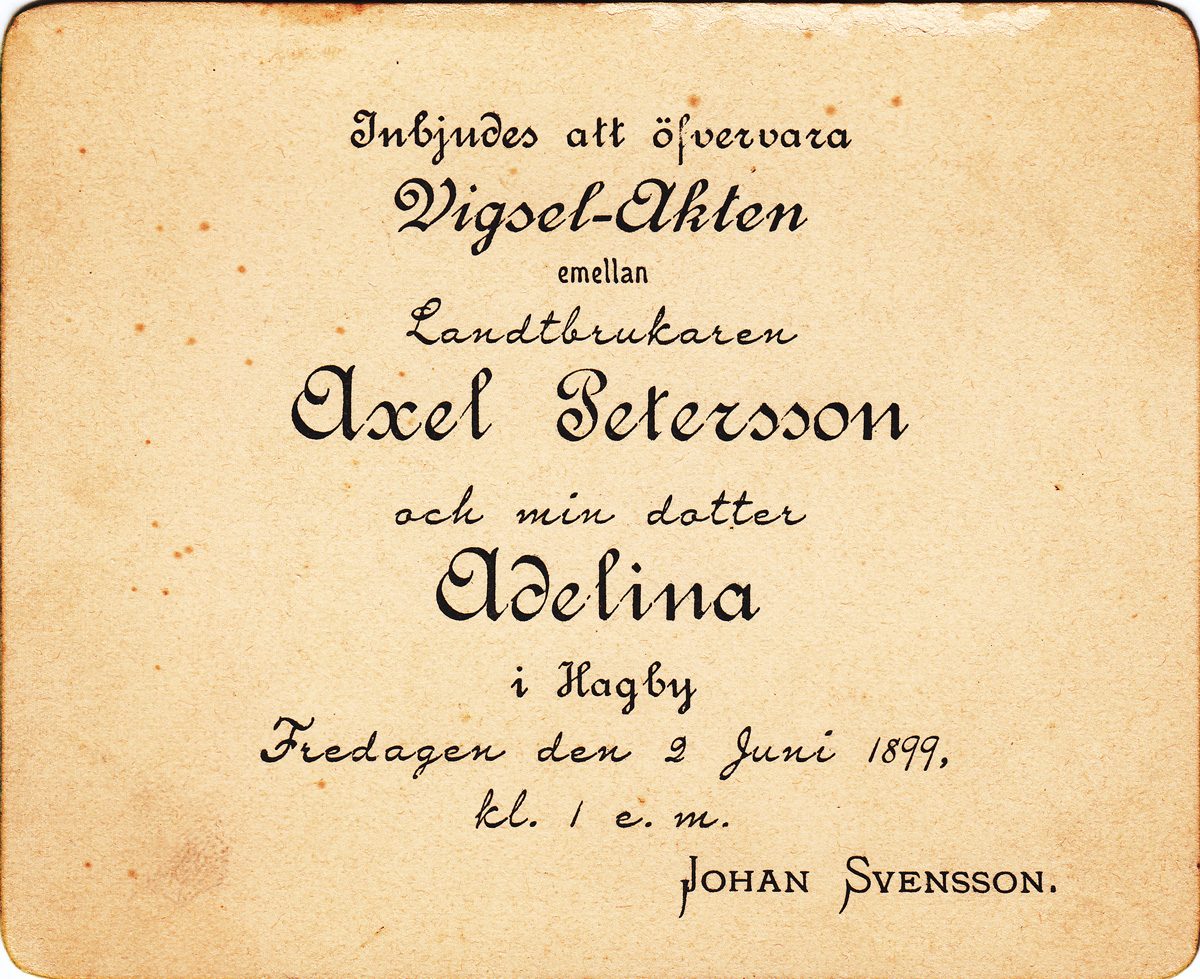 Inbjudes att öfvervara
Vigsel-Akten
emellan
Landtbrukaren
Axel Petersson
och min dotter
Adelina
i Hagby
Fredagen den 2 Juni 1899,
kl. 1 e. m.
JOHAN SVENSSON.